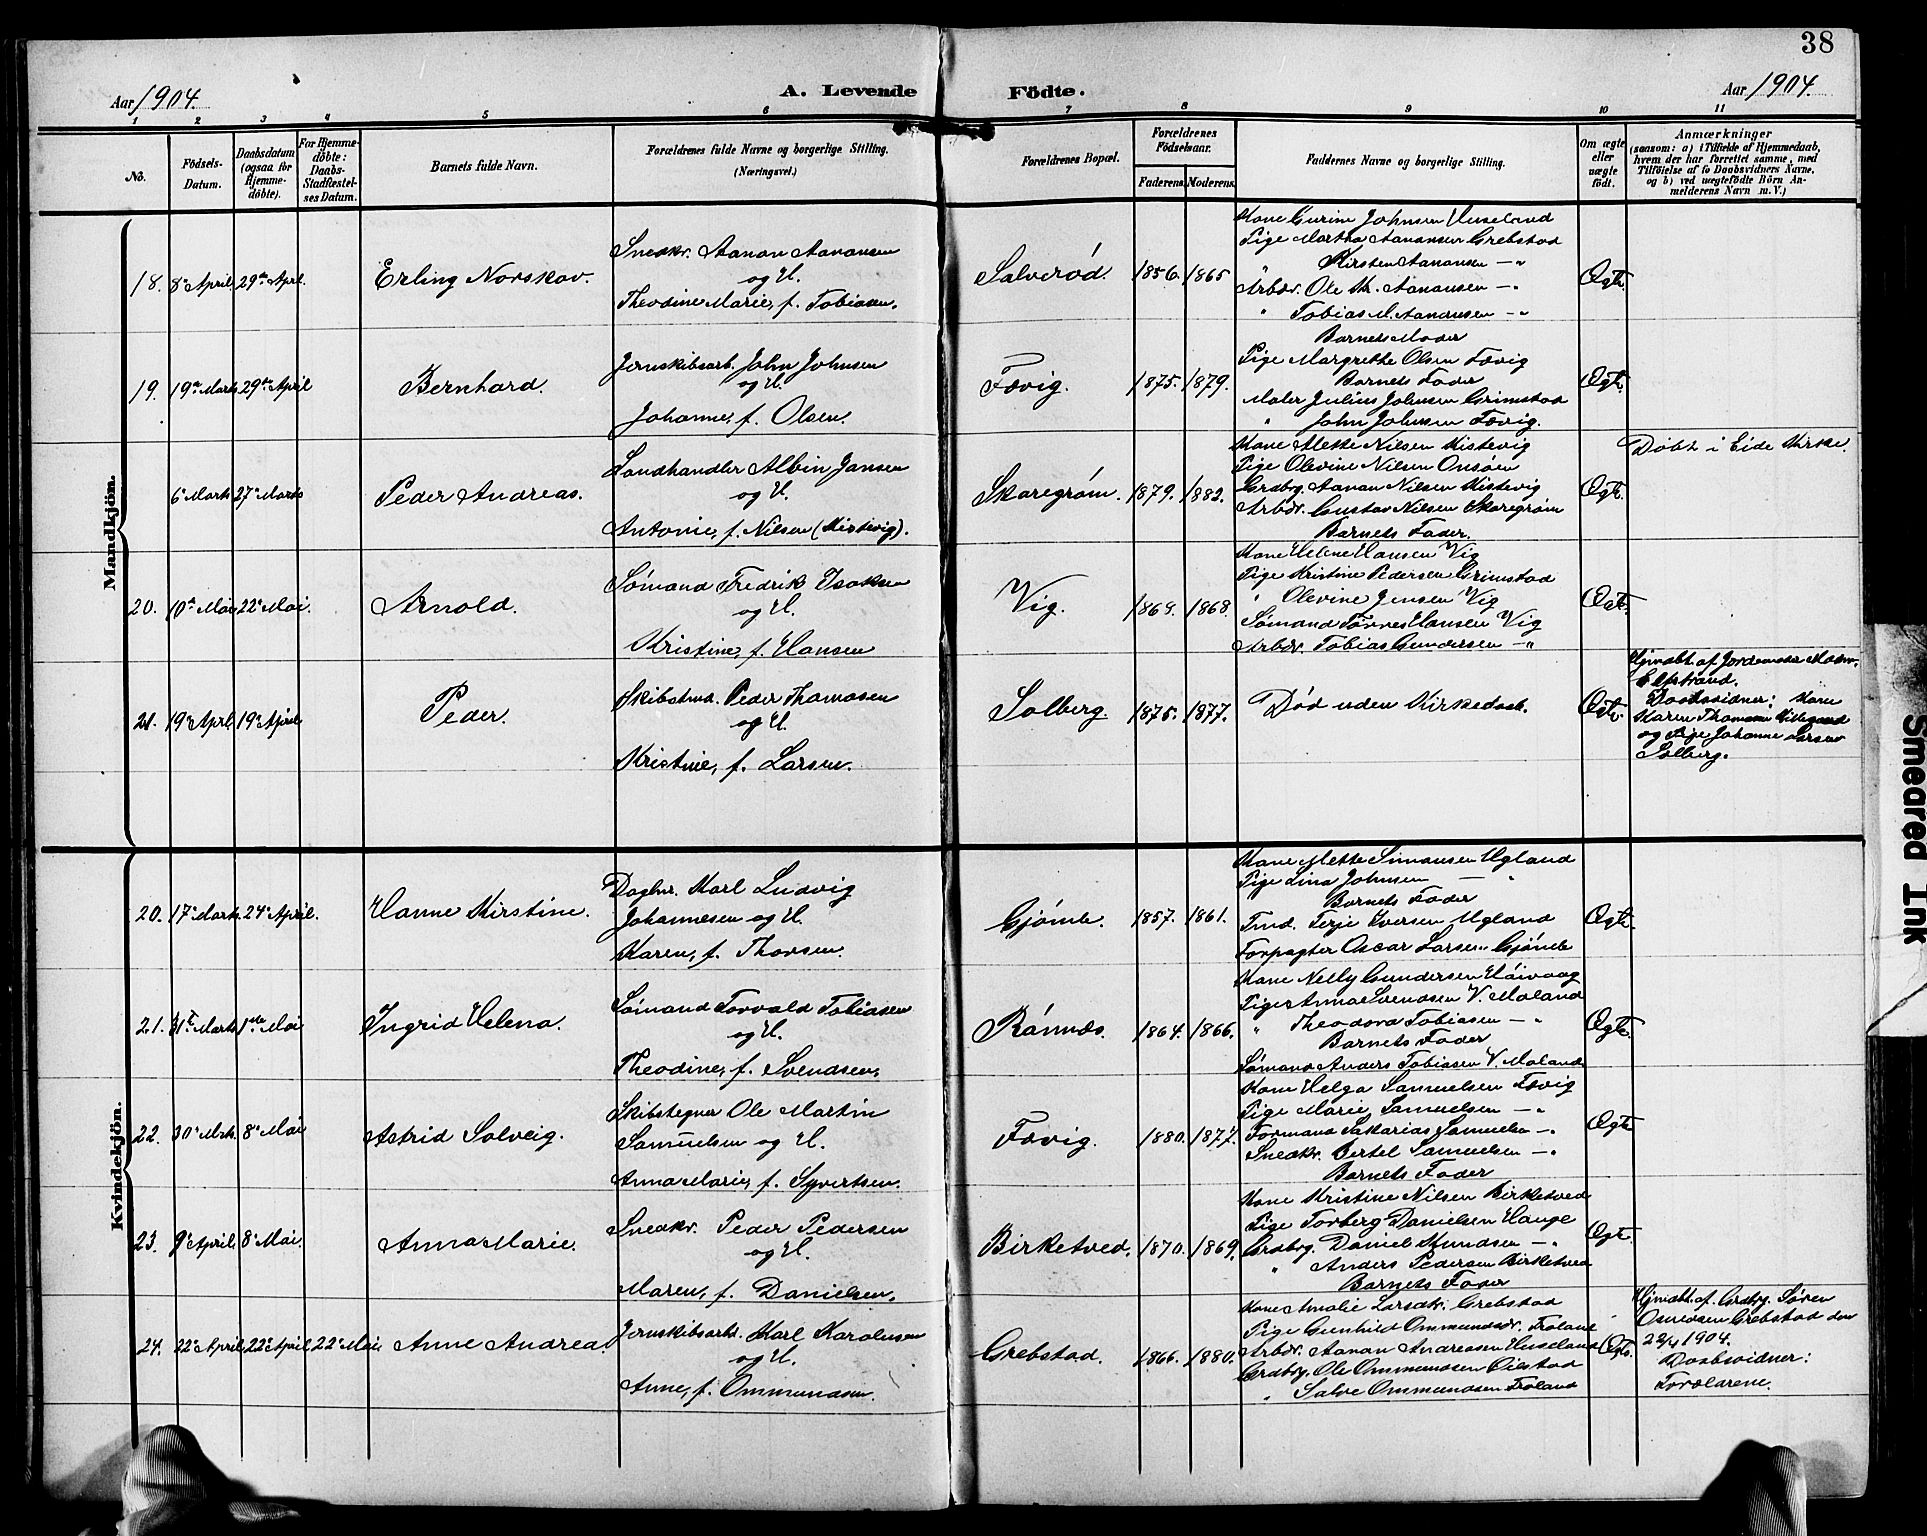 38
Aar 1904.
A. Levende Födte.
Aar 1904.
1 2 3 4 5 6 7 8 9 10 11
No.
Födsels-Datum.
Daabsdatum (ogsaa for Hjemme-döbte).
For Hjemme-döbte: Daabs-Stadfæstel-ses Datum.
Barnets fulde Navn.
Forældrenes fulde Navne og borgerlige Stilling.
(Næringsvei.)
Forældrenes Bopæl.
Forældrenes Födselsaar.
Faderens. Moderens.
Faddernes Navne og borgerlige Stilling.
Om ægte eller uægte födt.
Anmærkninger
(saasom: a) i Tilfælde af Hjemmedaab, hvem der har forrettet samme, med Tilföielse af to Daabsvidners Navne, og b) ved uægtefödte Börn An-melderens Navn m. V.)
Mandkjön.
18. 8de April 29de April. Erling Norskov.
Snedkr. Aanon Aanonsen
og H.
Theodine Marie, f. Tobiasen.
Salveröd. 1856. 1865
Kone Gurine Johnsen Huseland
Pige Martha Aanonsen Grebstad
" Kirsten Aanonsen —"
Arbdr. Ole Kr. Aanonsen —"
" Tobias M. Aanonsen —"
Ægte.
19. 19de Marts 29de April Bernhard.
Jernskibsarb. John Johnsen
og H.
Johanne, f. Olsen.
Fævig. 1875. 1879.
Barnets Moder
Pige Margrethe Olsen Fævig
Barnets Fader
Maler Julius Johnsen Grimstad
" John Johnsen Fævig.
Ægte.
6te Marts 27de Marts Peder Andreas.
Landhandler Albin Jansen
og H.
Antonie, f. Nilsen (Kistevig).
Skaregröm. 1879. 1882.
Kone Mette Nilsen Kistevig
Pige Olevine Nilsen Omsöen
Grdbrg. Aanon Nilsen Kistevig
Arbdr. Gustav Nilsen Skaregröm
Barnets Fader.
Ægte.
Döbt i Eide Kirke.
20. 10de Mai 22de Mai. Arnold.
Sömand Fredrik Isaksen
og H.
Kristine, f. Hansen
Vig. 1868. 1868.
Kone Helene Hansen Vig
Pige Kristine Pedersen Grimstad
" Olevine Jensen Vig
Sömand Tönnes Hansen Vig
Arbdr. Tobias Gundersen —"
Ægte.
21. 19de April 19de April Peder.
Skibstmd. Peder Thomasen
og H.
Kristine, f. Larsen.
Solberg. 1875. 1877.
Död uden Kirkedaab.
Ægte.
Hjmdbt. af Jordemoder
Elfstrand.
Daabsvidner: Kone
Karen Thomasen
og Pige Johanne Larsen
Solberg.
Kvindekjön.
20. 17de Marts 24de April. Hanne Kirstine.
Dagbr. Karl Ludvig
Johannesen og H.
Karen, f. Thorsen.
Gjömle. 1857. 1861.
Kone Mette Simonsen Ugland
Pige Lina Johnsen — "
Barnets Fader
Tmd. Terje Iversen Ugland
Forpagter Oscar Larsen Gjömle
Ægte.
21. 31te Marts 1ste Mai Ingrid Helena.
Sömand Torvald Tobiasen
og H.
Theodine, f. Svendsen.
Rönnes. 1864. 1866.
Kone Nelly Gundersen Höivaag
Pige Anna Svendsen V. Moland
" Theodora Tobiasen —"
Barnets Fader
Sömand Anders Tobiasen V. Moland
Ægte.
22. 30te Mrts. 8de Mai Astrid Solveig.
Skibstegner Ole Martin
Samuelsen og H.
Anna Marie, f. Syvertsen.
Fævig. 1880. 1877.
Kone Helga Samuelsen Fævig
Pige Marie Samuelsen —"
Formand Sakarias Samuelsen —"
Snedkr. Bertel Samuelsen —"
Barnets Fader
Ægte
23. 9de April 8de Mai. Anna Marie.
Snedkr. Peder Pedersen
og H.
Maren, f. Danielsen.
Birketved. 1870. 1869.
Kone Kristine Nilsen Birketved
Pige Torberg Danielsen Hauge
Grdbrg. Daniel Knudsen —"
" Anders Pedersen Birketved
Barnets Fader
Ægte.
24. 22de April 22de April 22de Mai Anne Andrea.
Jernskibsarbd. Karl Karolusen
og H.
Anne, f. Ommundsen.
Grebstad. 1866. 1880.
Kone Amalie Larsdtr. Grebstad
Pige Gunhild Ommundsdr. Froland
Arbdr. Aanon Andreasen Huseland
Grdbrg. Ole Ommundsen Öiestad
" Salve Ommundsen Froland
Ægte.
Hjmdbt. af Grdbrg. Sören
Osmundsen Grebstad den
22/4 1904.
Daabsvidner:
Forældrene.
Smeared Ink